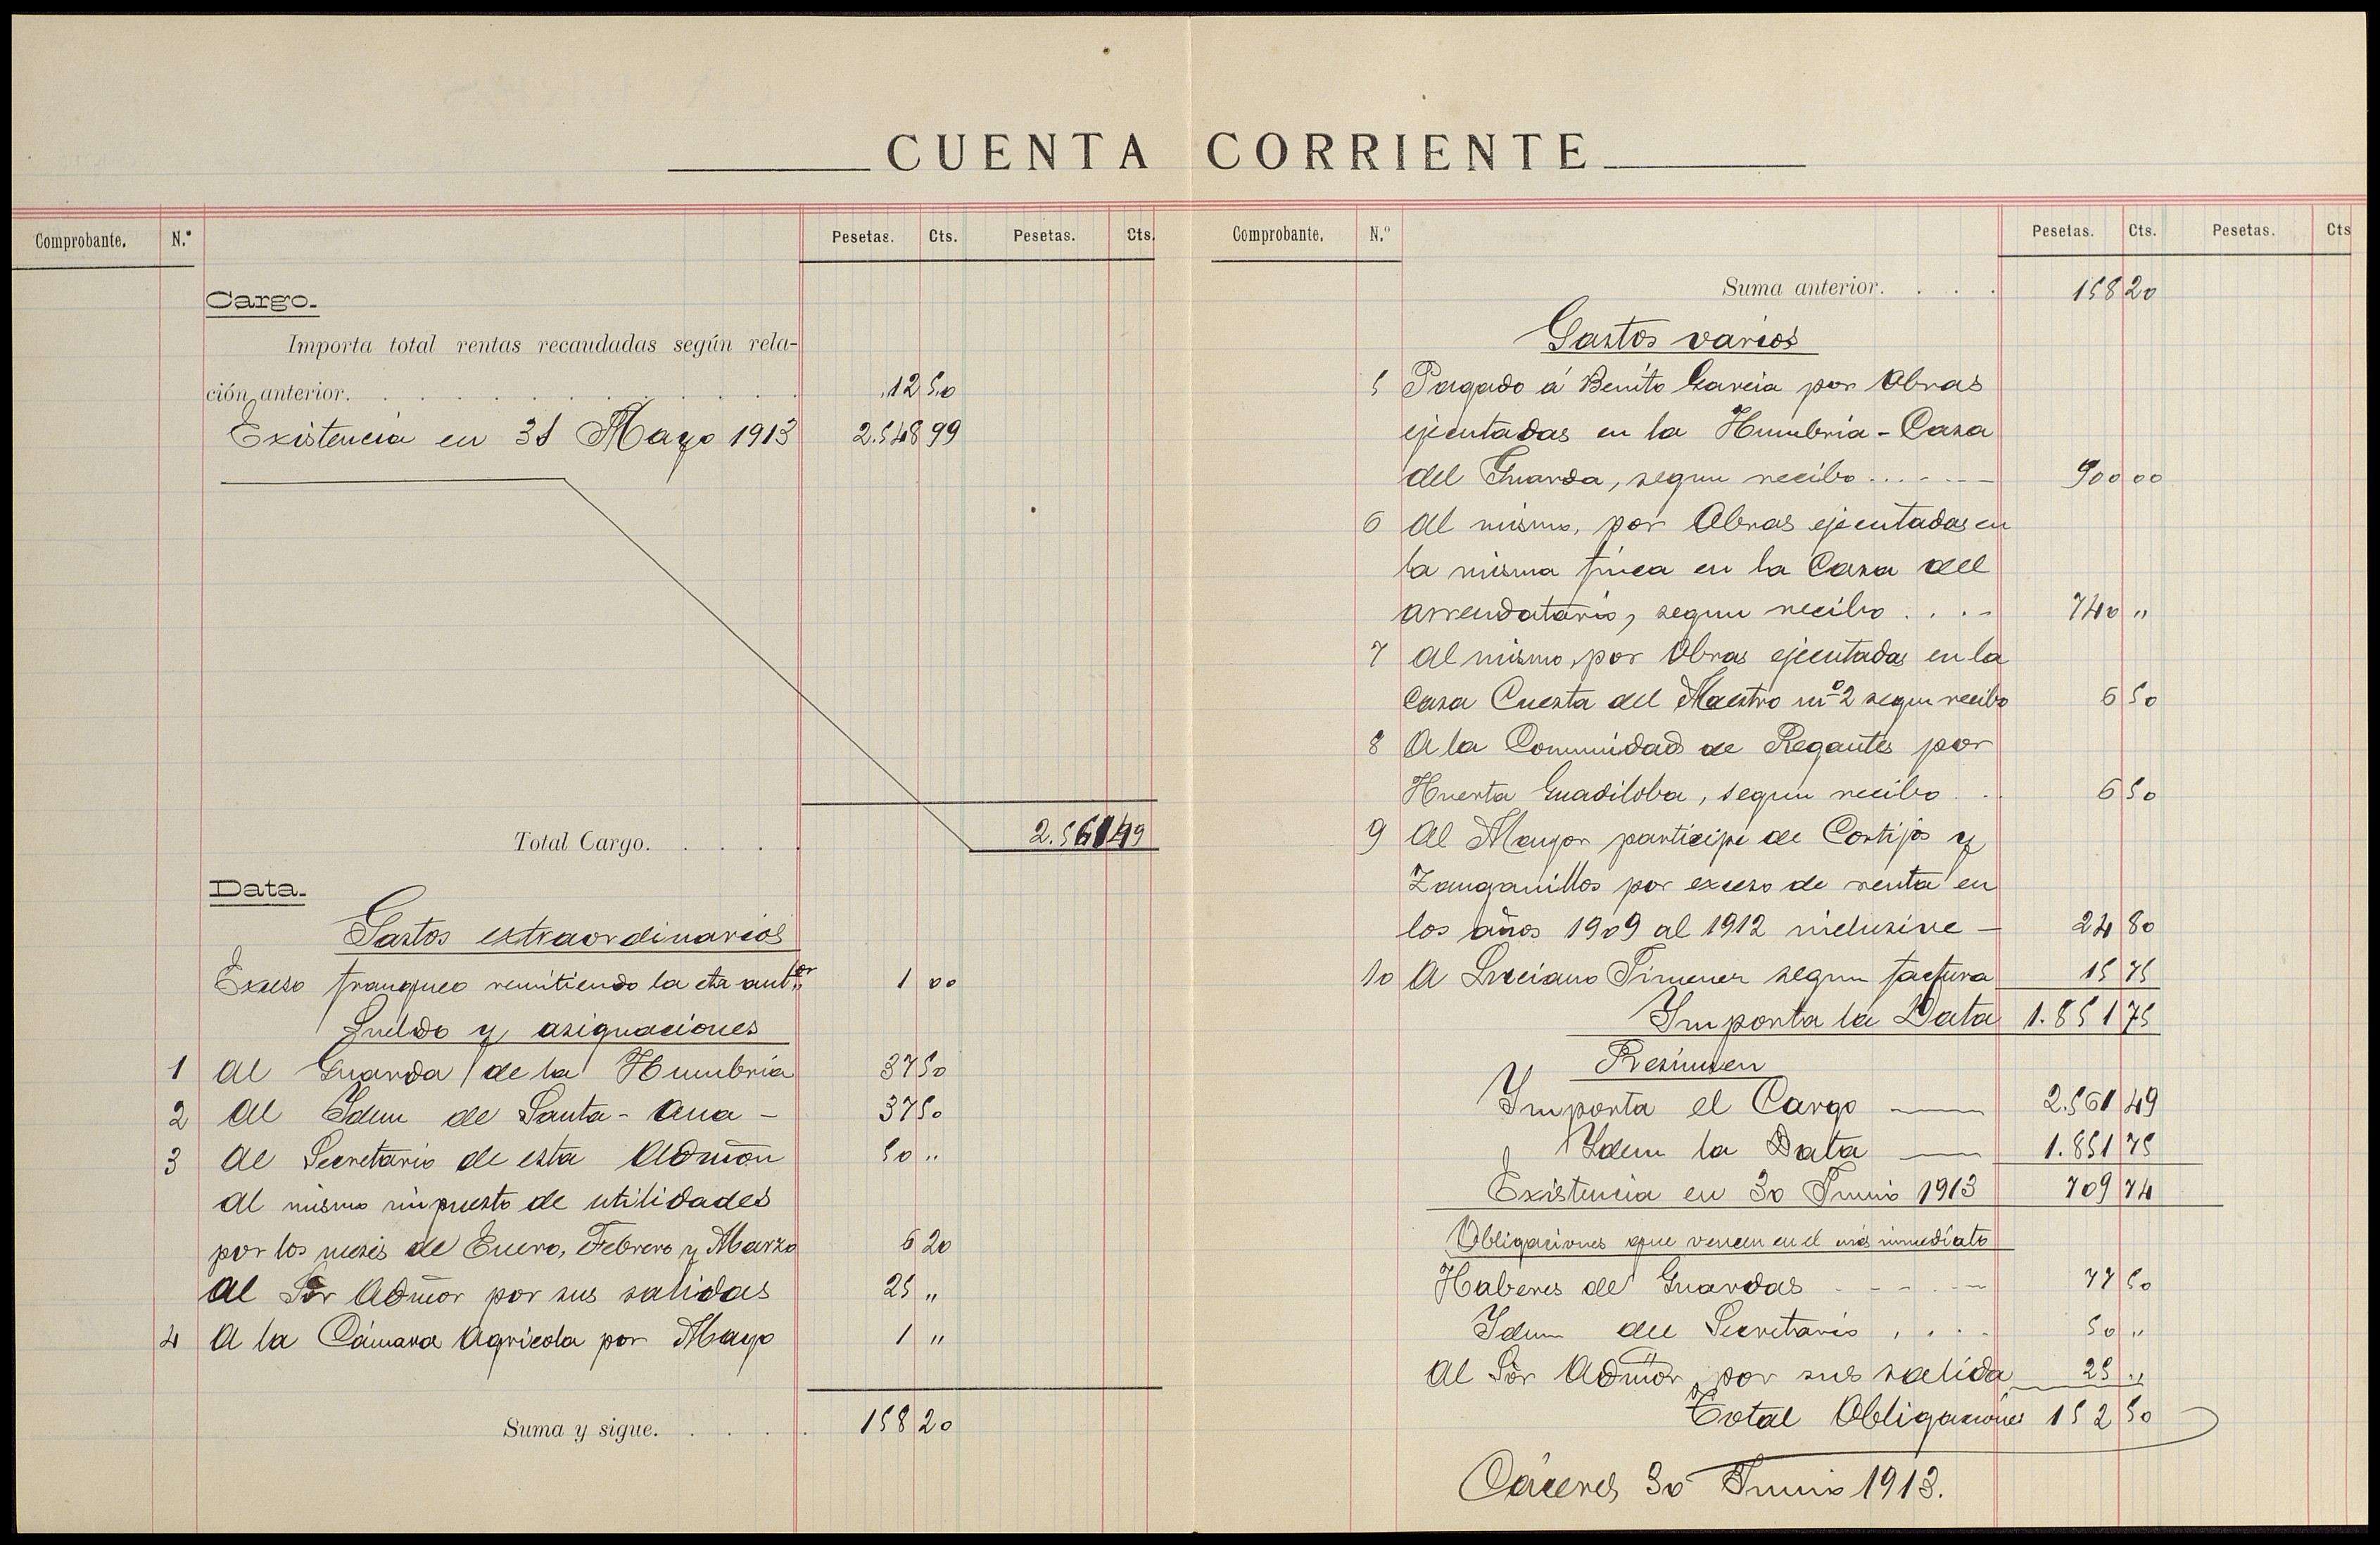 CUENTA CORRIENTE
Comprobante. N.º Pesetas. Cts. Pesetas. Cts.
Cargo.
Importa total rentas recaudadas según rela-
ción anterior. . . . . . . . . . . . 12 50
Existencia en 31 Mayo 1913 2.548 99
Total Cargo. . . . . 2.561 49
Data.
Gastos extraordinarios
Exceso franqueo remitiendo la cta antor 1 00
Sueldo y asignaciones
1 Al Guarda de la Humbria 37 50
2 Al Idem de Santa-Ana - 37 50
3 Al Secretario de esta Admon 50 "
Al mismo impuesto de utilidades
por los meses de Enero, Febrero y Marzo 6 20
Al Sor Admor por sus salidas 25 "
4 A la Cámara Agricola por Mayo 1 "
Suma y sigue. . . . . 158 20
Comprobante. N.º Pesetas. Cts. Pesetas. Cts
Suma anterior. . . . 158 20
Gastos varios
5 Pagado á Benito Garcia por Obras
ejecutadas en la Humbria - Casa
del Guarda, segun recibo . . . - - - 900 00
6 Al mismo, por Obras ejecutadas en
la misma finca en la Casa del
arrendatario, segun recibo . . . - 740 "
7 Al mismo, por Obras ejecutadas en la
Casa Cuesta del Maestro nº 2 segun recibo 6 50
8 A la Comunidad de Regantes por
Huerta Guadiloba, segun recibo . . 6 50
9 Al Mayor participe de Cortijos y
Zanganillos por exceso de renta en
los años 1909 al 1912 inclusive - 24 80
10 A Luciano Jimenez segun factura 15 75
Importa la Data 1.851 75
Resumen
Importa el Cargo — 2.561 49
Idem la Data — 1.851 75
Existencia en 30 Junio 1913 709 74
Obligaciones que vencen en el mes inmediato
Haberes de Guardas - - - - 77 50
Idem del Secretario . . . . 50 "
Al Sor Admor por sus salida 25 "
Total Obligaciones 152 50
Cáceres 30 Junio 1913.